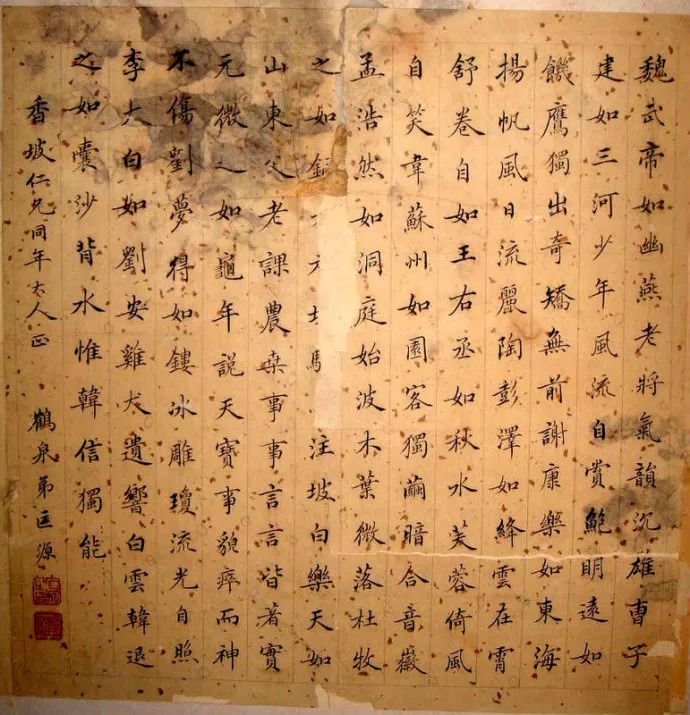 魏武帝如幽燕老將氣韻沉雄曹子
建如三河少年風流自賞鮑明遠如
饑鷹獨出奇矯無前謝康樂如東海
揚帆風日流麗陶彭澤如絳雲在霄
舒卷自如王右丞如秋水芙蓉倚風
自笑韋蘇州如園客獨繭暗合音徽
孟浩然如洞庭始波木葉微落杜牧
之如銅 注坡白樂天如
山東父老課農桑事事言言皆著實
元微之如龜年說天寶事貌瘁而神
不傷劉夢得如鏤冰雕瓊流光自照
李太白如劉安雞犬遺響白雲韓退
之如囊沙背水惟韓信獨能
香坡仁兄同年大人正 鶴泉弟匡源